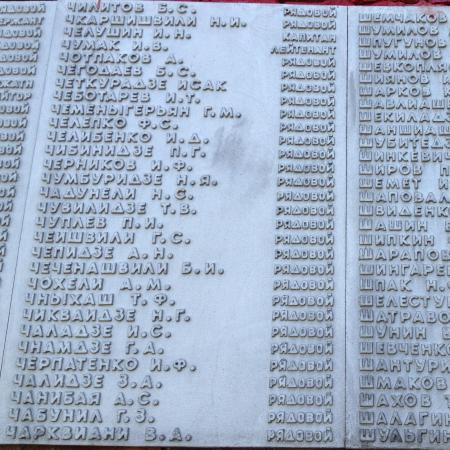 ЧИЛИТОВ Б.С. РЯДОВОЙ
ЧКАРШИШВИЛИ Н.И. РЯДОВОЙ
ЧЕЛУШИН И.Н. КАПИТАН
ЧУМАК И.В. ЛЕЙТЕНАНТ
ЧОТПАКОВ А. РЯДОВОЙ
ЧЕГОДАЕВ Б.С. РЯДОВОЙ
ЧЕТКУРАДЗЕ ИСАК РЯДОВОЙ
ЧЕБОТАРЕВ И.Т. РЯДОВОЙ
ЧЕМЕНЫГЕРЬЯН Г.М. РЯДОВОЙ
ЧЕЛЕПКО Ф.С. РЯДОВОЙ
ЧЕЛИБЕНКО И.Д. РЯДОВОЙ
ЧИБИНИДЗЕ П.Г. РЯДОВОЙ
ЧЕРНИКОВ И.Ф. РЯДОВОЙ
ЧУМБУРИДЗЕ Н.Я. РЯДОВОЙ
ЧАДУНЕЛИ Н.С. РЯДОВОЙ
ЧУВИЛИДЗЕ Т.В. РЯДОВОЙ
ЧУПЛЕВ П.И. РЯДОВОЙ
ЧЕИШВИЛИ Г.С. РЯДОВОЙ
ЧЕПИДЗЕ А.Н. РЯДОВОЙ
ЧЕЧЕНАШВИЛИ Б.И. РЯДОВОЙ
ЧОХЕЛИ А.М. РЯДОВОЙ
ЧНЫХАШ Т.Ф. РЯДОВОЙ
ЧИКВАИДЗЕ Н.Г. РЯДОВОЙ
ЧАЛАДЗЕ И.С. РЯДОВОЙ
ЧНАМДЗЕ Г.А. РЯДОВОЙ
ЧЕРПАТЕНКО И.Ф. РЯДОВОЙ
ЧАЛИДЗЕ З.А. РЯДОВОЙ
ЧАНИБАЯ А.С. РЯДОВОЙ
ЧАБУНИЛ Г.З. РЯДОВОЙ
ЧАРХВИАНИ В.А. РЯДОВОЙ
ШЕМЧАКОВ
ШУМИЛОВ
ШПУГУНОВ
ШУМИЛОВ
ШЕВКОПЛЯ
ШИЯНОВ
ШАРКОВ
ШАВЛИАШ
ШЕКИЛАД
ШАНШИАШ
ШУБИТЕД
ШИНКЕВИЧ
ШИРОВ П
ШЕМЕТ И
ШАПОВАЛ
ШВИДЕНК
ШАШИН
ШИПКИН
ШАРАПОВ
ШИНГАРЕ
ШПАК Н.
ШЕЛЕСТУ
ШАТРАВО
ШУНИН
ШЕВЧЕНКО
ШАНТУРИ
ШМАКОВ
ШАХОВ
ШАЛАГИН
ШУЛЬГИН